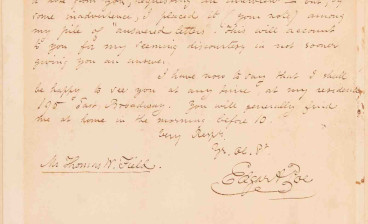 a note from you, requesting an interview — but, by
some inadvertence, I placed it (your note) among
my pile of "answered letters". This will account
to you for my seeming discourtesy in not sooner
giving you an answer.
I have now to say that I shall
be happy to see you at any time at my residence
195 East Broadway. You will generally find
me at home in the morning before 10.
Very Respy.
Yr. Ob. St
Edgar A Poe
Mr Thomas W. Field.